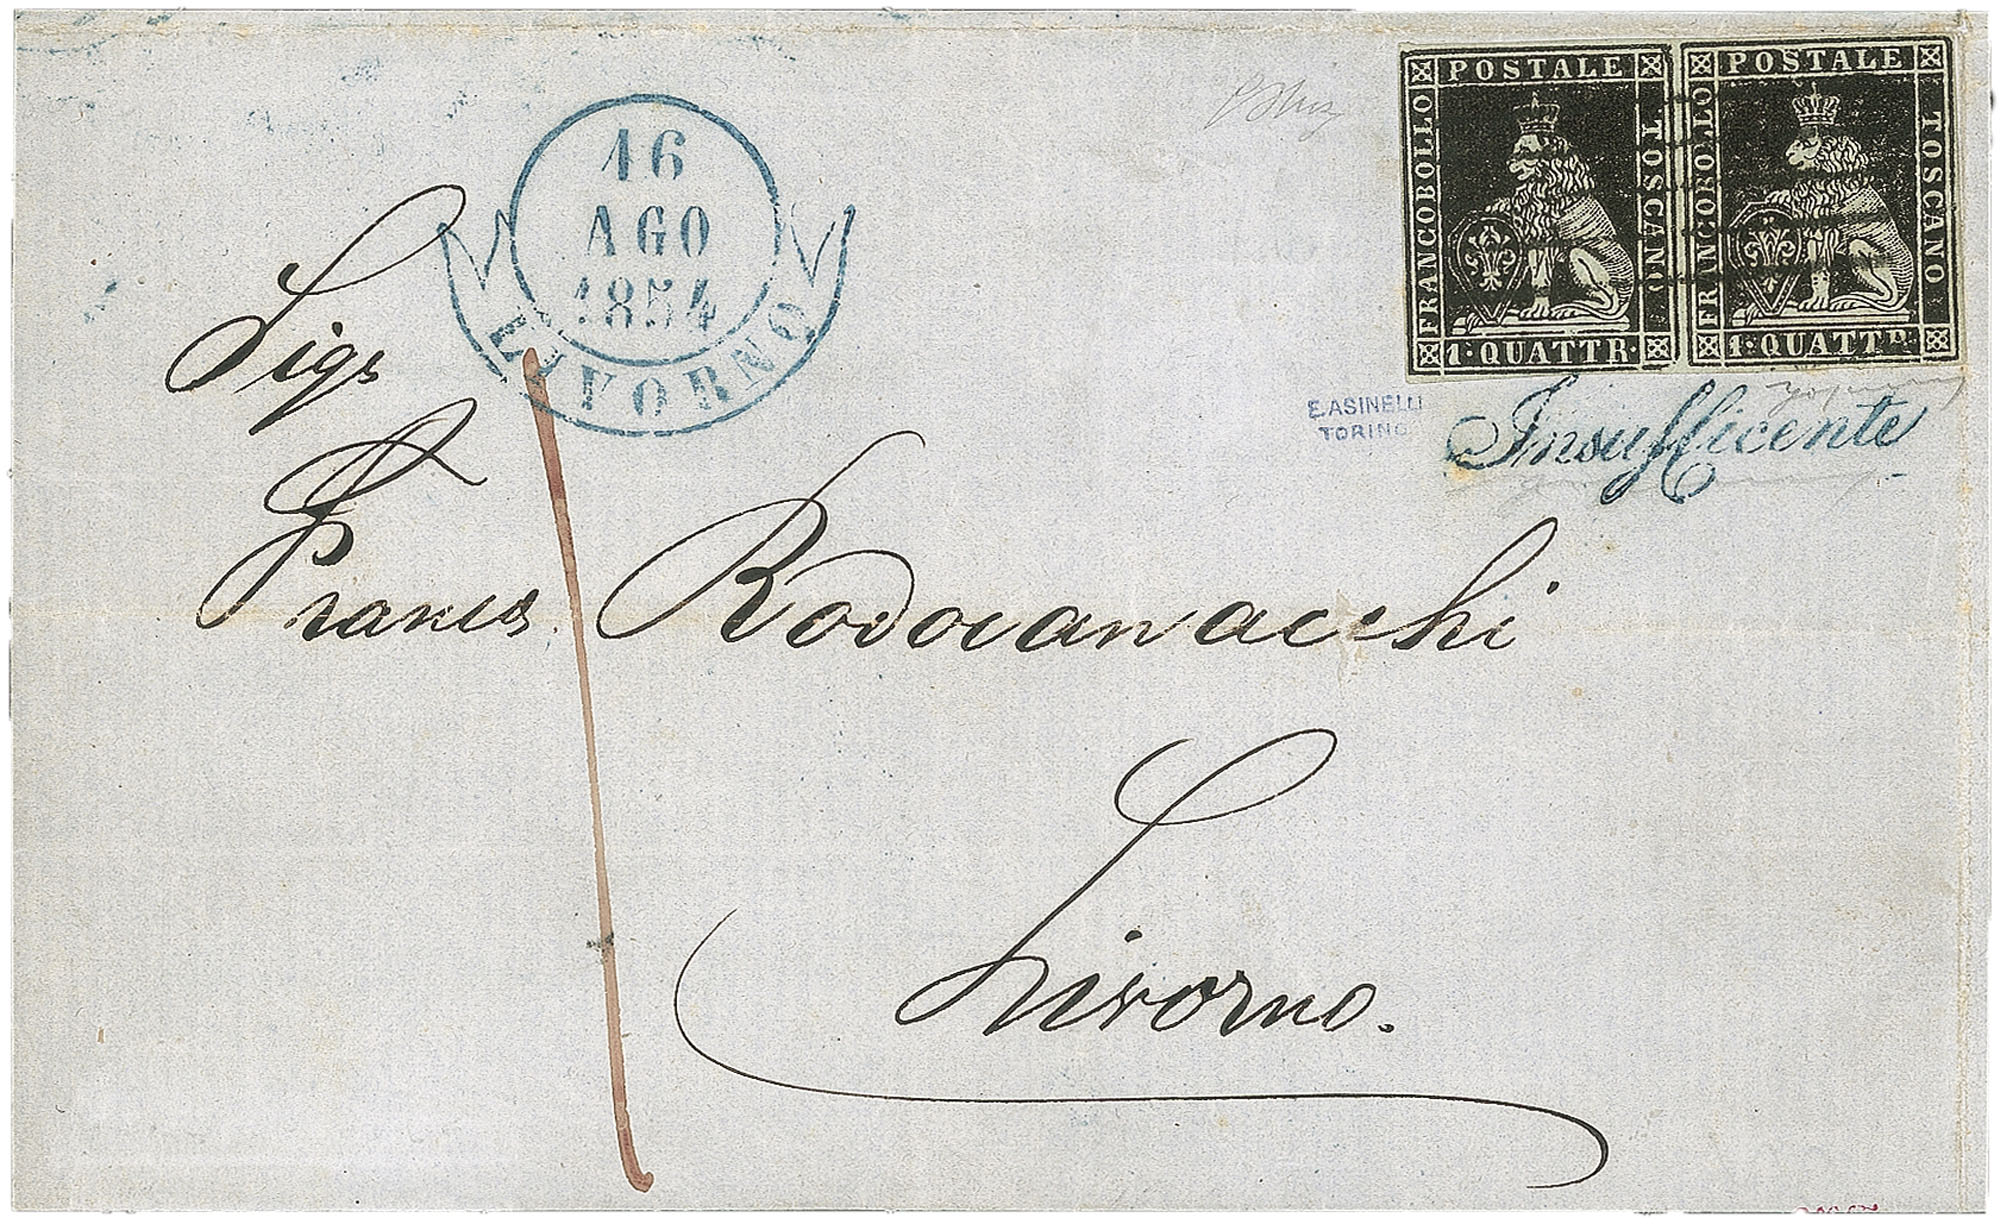 16
AGO
1854
LIVORNO
POSTALE
FRANCOBOLLO
TOSCANO
1·QUATTR·
POSTALE
FRANCOBOLLO
TOSCANO
1·QUATTR·
E.ASINELLI
TORINO
Insufficente
Sigr
Franco Rodocanacchi
Livorno.